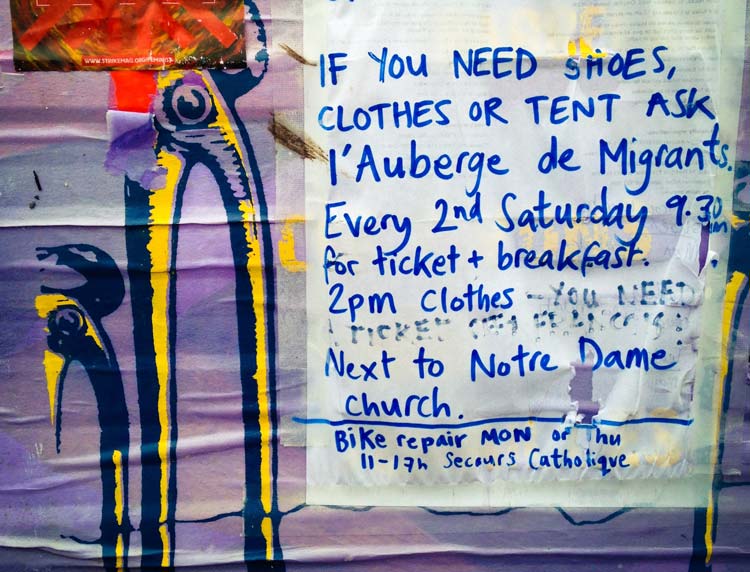 IF YOU NEED SHOES,
CLOTHES OR TENT ASK
l'Auberge de Migrants.
Every 2nd Saturday 9.30
for ticket + breakfast.
2pm Clothes - YOU NEED
TICKET
Next to Notre Dame
Church.
Bike repair MON or Thu
11-17h Secours Catholique